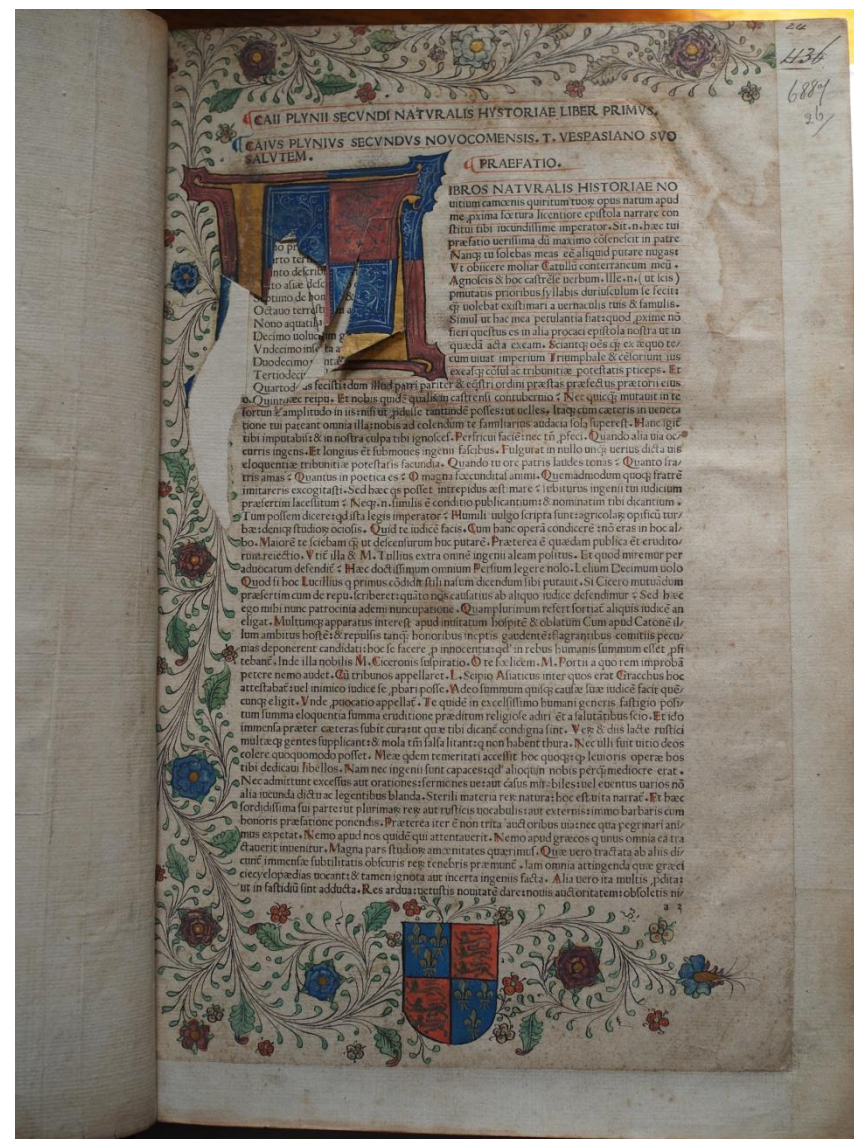 24
436
6889
26
CAII PLYNII SECVNDI NATVRALIS HYSTORIAE LIBER PRIMVS.
CAIVS PLYNIVS SECVNDVS NOVOCOMENSIS. T. VESPASIANO SVO
SALVTEM.
PRAEFATIO.
IBROS NATVRALIS HISTORIAE NO
uitium camœnis quiritum tuoꝝ opus natum apud
me ꝓxima fœtura licentiore epistola narrare con
stitui tibi iucundissime imperator. Sit.n. hæc tui
præfatio uerissima dū maximo cōsenescit in patre
Nanqꝫ tu solebas meas eē aliquid putare nugas:
Vt obiicere moliar Catullū conterraneum meū.
Agnoscis & hoc castrēse uerbum. Ille.n.(ut scis)
ꝑmutatis prioribus syllabis duriusculum se fecit:
ꝙ uolebat existimari a uernaculis tuis & famulis.
Simul ut hac mea petulantia fiat: quod ꝓxime nō
fieri questus es in alia procaci epistola nostra ut in
quædā acta exeam. Sciantqꝫ oēs ꝙ ex æquo te/
cum uiuat imperium Triumphale & cēsorium ius
Octauo terrest
Nono aquatil
Decimo uoluc
Vndecimo inse
Duodecimo
Quartod
fecisti: dum illud patri pariter & eqstri ordini præstas præfectus prætorii eius
reipu. Et nobis quidē qualis in castrensi contubernio? Nec quicqꝫ mutauit in te
fortun amplitudo in iis: nisi ut ꝓdesse tantundē posses: ut uelles. Itaqꝫ cum cæteris in uenera
tione tui pareant omnia illa: nobis ad colendum te familiarius audacia sola superest. Hanc igit̄
tibi imputabis: & in nostra culpa tibi ignosces. Perfricui faciē: nec tn̄ ꝓfeci. Quando alia uia oc/
curris ingens. Et longius ēt submoues ingenii fascibus. Fulgurat in nullo unqꝫ uerius dicta uis
eloquentiæ tribunitiæ potestatis facundia. Quando tu ore patris laudes tonas? Quanto fra/
tris amas? Quantus in poetica es? O magna fœcunditas animi. Quemadmodum quoqꝫ fratrē
imitareris excogitasti. Sed hæc qs posset intrepidus æstimare? Iebiturus ingenii tui iudicium
præsertim lacessitum? Neqꝫ.n. similis ē conditio publicantium: & nominatim tibi dicantium.
Tum possem dicere: qd ista legis imperator? Humili uulgo scripta sunt: agricolaꝝ opificū tur/
bæ: deniqꝫ studioꝝ ociosis. Quid te iudicē facis. Cum hanc operā condicerē: nō eras in hoc al/
bo. Maiorē te sciebam ꝙ ut descensurum huc putarē. Præterea ē quædam publica ēt erudito/
rum reiectio. Vtit̄ illa & M. Tullius extra omnē ingenii aleam positus. Et quod miremur per
aduocatum defendit̄? Hæc doctissimum omnium Persium legere nolo. Lelium Decimum uolo
Quod si hoc Lucillius q primus cōdidit stili nasum dicendum sibi putauit. Si Cicero mutuādum
præsertim cum de repu. scriberet: quāto nos causatius ab aliquo iudice defendimur? Sed hæc
ego mihi nunc patrocinia ademi nuncupatione. Quamplurimum refert sortiat̄ aliquis iudicē an
eligat. Multumqꝫ apparatus interest apud inuitatum hospitē & oblatum Cum apud Catonē il/
lum ambitus hostē: & repulsis tanqꝫ honoribus ineptis gaudentē: flagrantibus comitiis pecu/
nias deponerent candidati: hoc se facere ꝓ innocentia: qd' in rebus humanis summum esset ꝓfi
tebant̄. Inde illa nobilis M. Ciceronis suspiratio. O te fœlicem. M. Portii a quo rem improbā
petere nemo audet. Cū tribunos appellaret. L. Scipio Asiaticus inter quos erat Gracchus hoc
attestabat̄: uel inimico iudice se ꝓbari posse. Adeo summum quisqꝫ causæ suæ iudicē facit quē/
cunqꝫ eligit. Vnde ꝓuocatio appellat̄. Te quidē in excelsissimo humani generis fastigio posi/
tum summa eloquentia summa eruditione præditum religiose adiri ēt a salutātibus scio. Et ido
immensa præter cæteras subit cura: ut quæ tibi dicant̄ condigna sint. Veꝝ & diis lacte rustici
multæqꝫ gentes supplicant: & mola tm̄ salsa litant: q non habent thura. Nec ulli fuit uitio deos
colere quoquomodo posset. Meæ qdem temeritati accessit hoc quoqꝫ: ꝙ leuioris operæ hos
tibi dedicaui libellos. Nam nec ingenii sunt capaces: qd' alioquin nobis perꝙmediocre erat.
Nec admittunt excessus aut orationes: sermones ue: aut casus mirabiles: uel euentus uarios nō
alia iucunda dictu ac legentibus blanda. Sterili materia reꝝ natura: hoc est uita narrat̄. Et hæc
sordidissima sui parte: ut plurimaꝝ reꝝ aut rusticis uocabulis: aut externis: immo barbaris cum
honoris præfatione ponendis. Præterea iter ē non trita auctoribus uia: nec qua pegrinari ani/
mus expetat. Nemo apud nos quidē qui attentauerit. Nemo apud græcos q unus omnia ea tra
ctauerit inuenitur. Magna pars studioꝝ amœnitates quærimus. Quæ uero tractata ab aliis di/
cunt̄ immensæ subtilitatis obscuris reꝝ tenebris præmunt̄. Iam omnia attingenda quæ græci
ciecyclopædias uocant: & tamen ignota aut incerta ingeniis facta. Alia uero ita multis ꝓdita:
ut in fastidiū sint adducta. Res ardua: uetustis nouitatē dare: nouis auctoritatem: obsoletis ni/
a 2